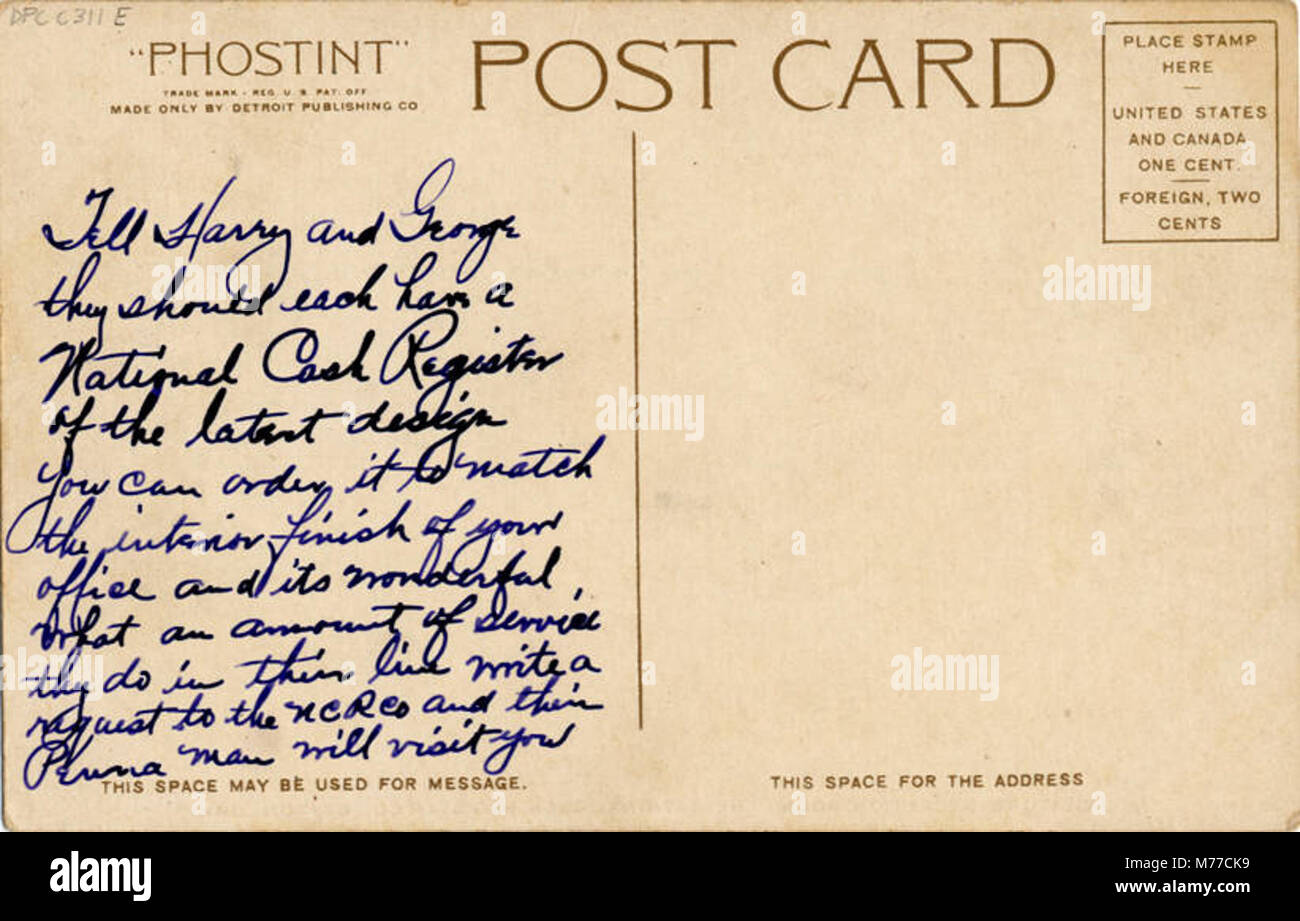 DPC C311 E
"PHOSTINT"
TRADE MARK - REG. U. S. PAT. OFF
MADE ONLY BY DETROIT PUBLISHING CO
POST CARD
PLACE STAMP
HERE
UNITED STATES
AND CANADA
ONE CENT.
FOREIGN, TWO
CENTS
Tell Harry and George
they should each have a
National Cash Register
of the latest design
You can order it to match
the interior finish of your
office and its wonderful
what an amount of service
they do in their line write a
request to the NCRCo and their
Penna man will visit you
THIS SPACE MAY BE USED FOR MESSAGE.
THIS SPACE FOR THE ADDRESS
alamy
alamy
alamy
alamy
alamy
alamy stock photo
M77CK9
www.alamy.com